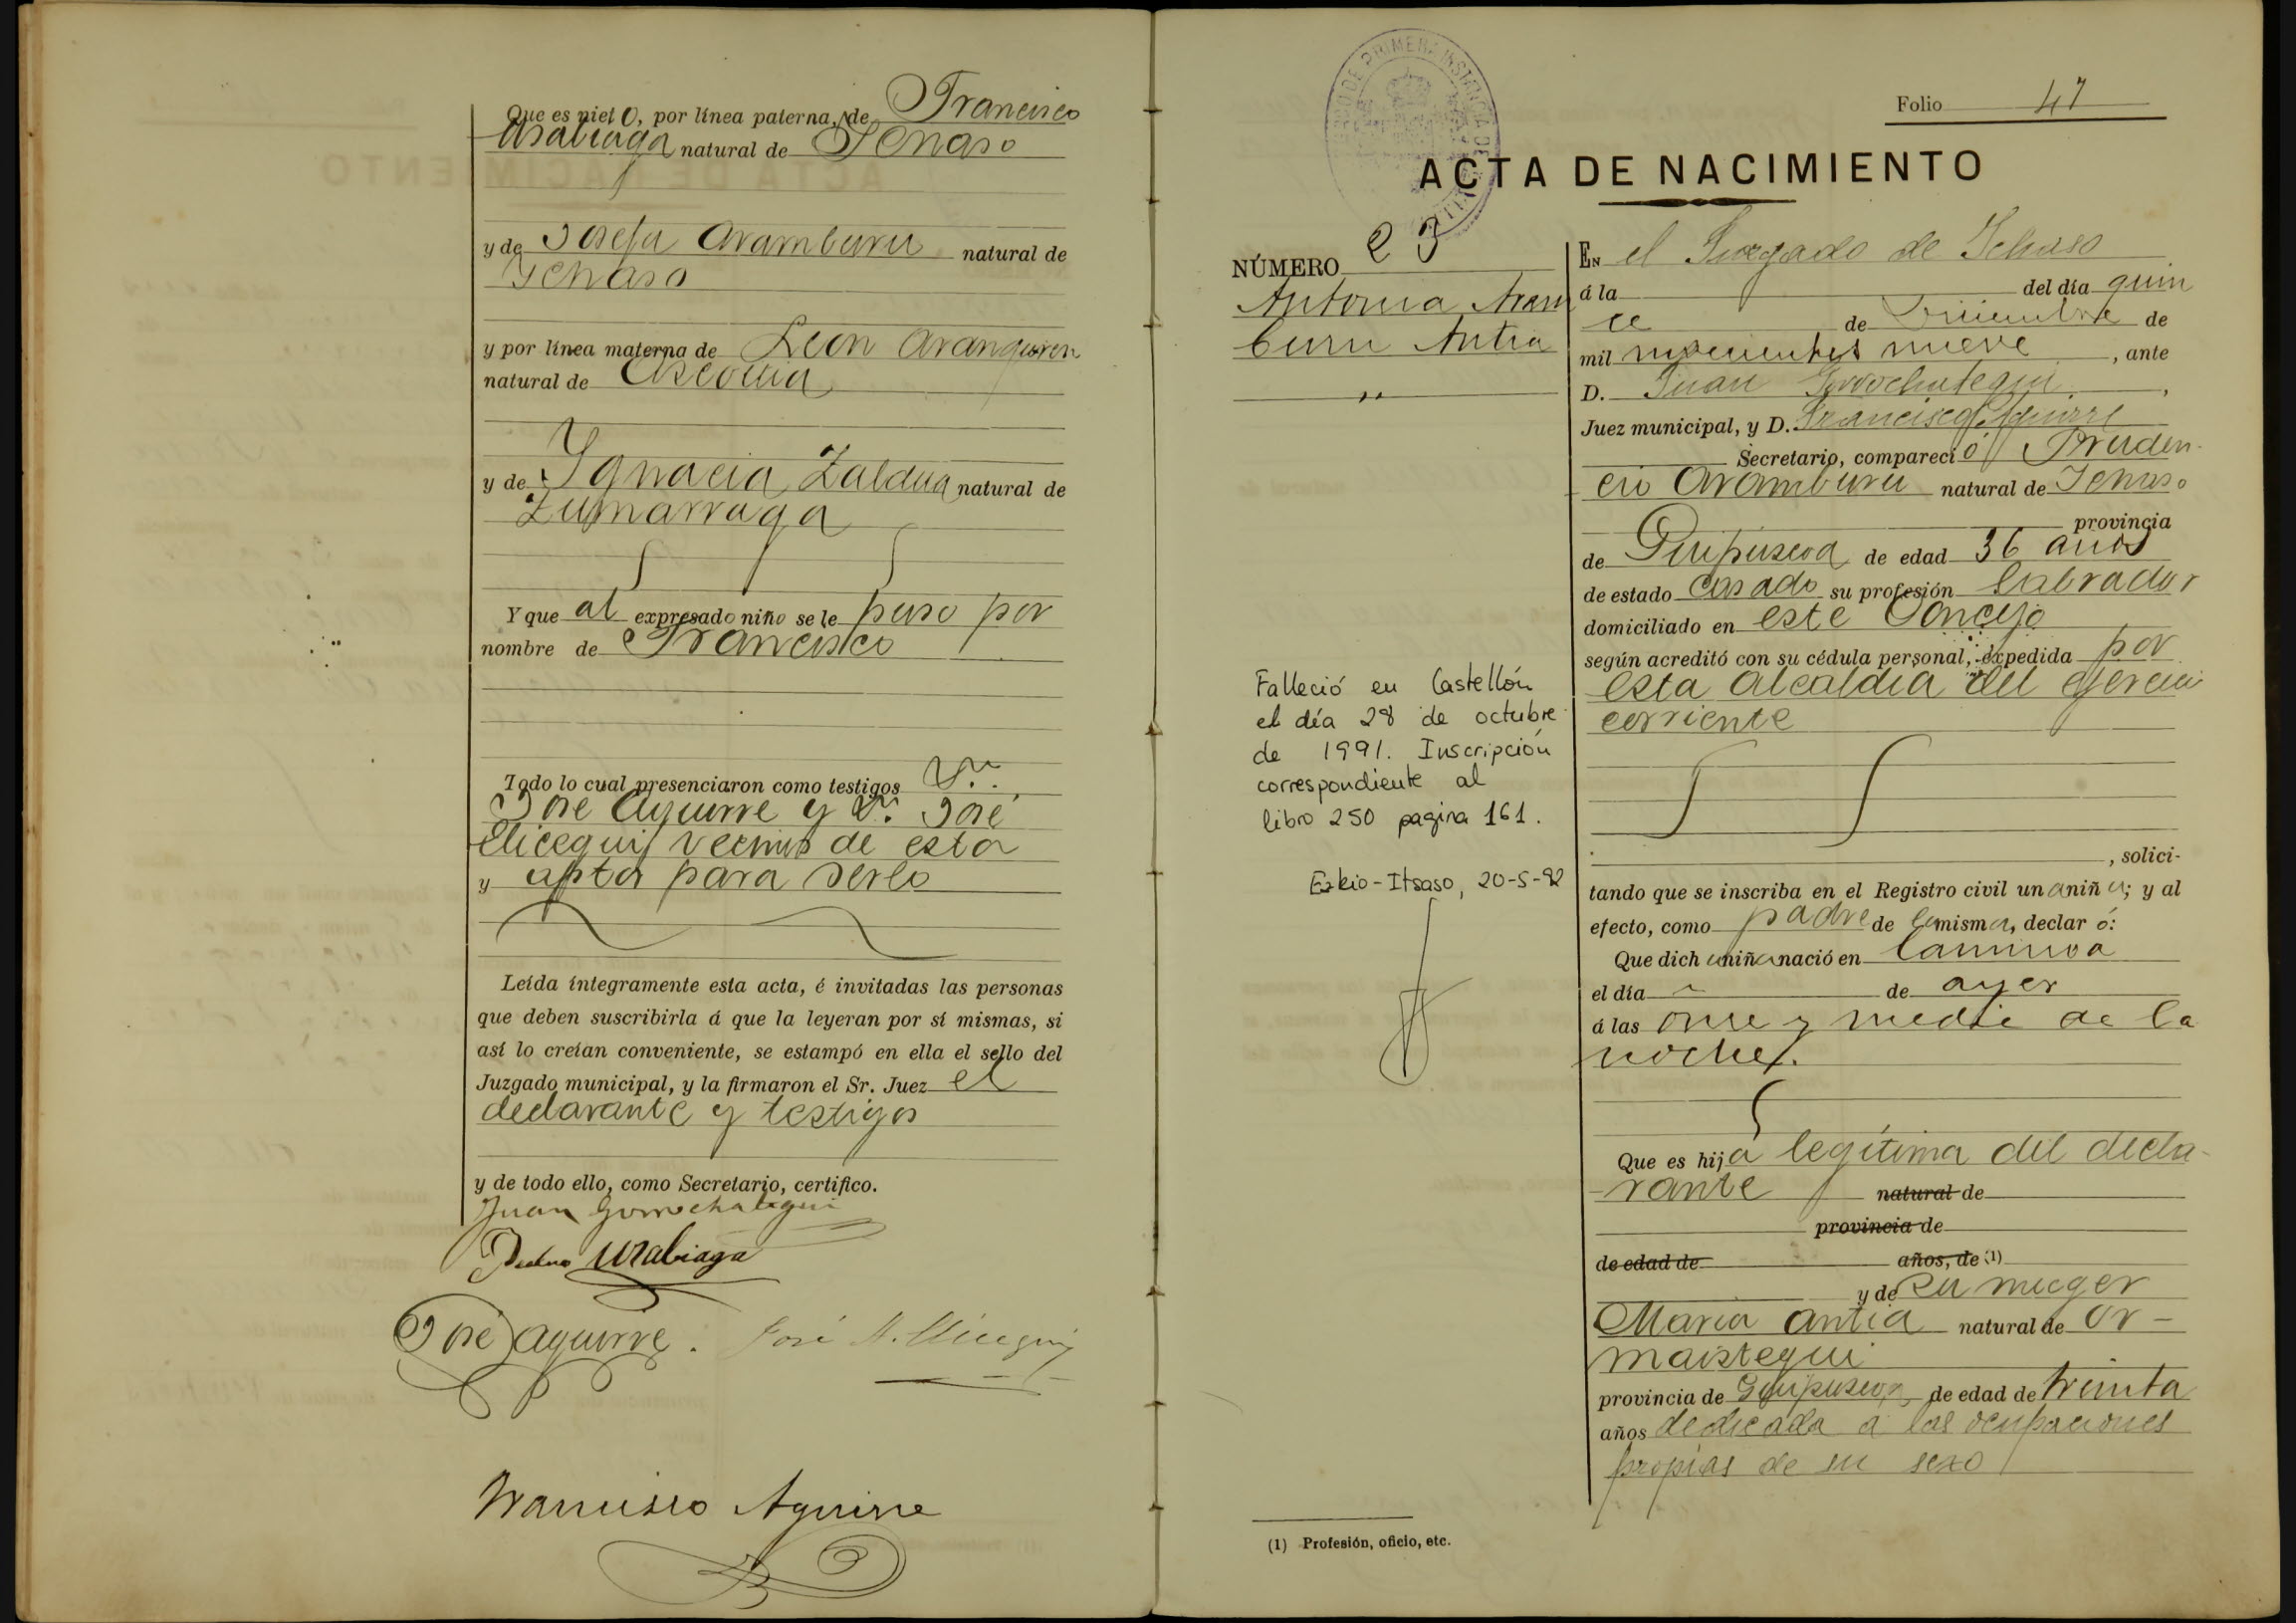 Que es nieto, por línea paterna, de Francisco
Urabiaga natural de Ichaso
y de Josefa Aramburu natural de
Ichaso
y por línea materna de Leon Aranguren
natural de Ascoitia
y de Ygnacia Zaldua natural de
Zumarraga
Y que al expresado niño se le puso por
nombre de Francisco
Todo lo cual presenciaron como testigos Dn.
José Aguirre y Dn. José
Elicegui vecinos de esta
y aptos para serlo
Leída íntegramente esta acta, é invitadas las personas
que deben suscribirla á que la leyeran por sí mismas, si
así lo creían conveniente, se estampó en ella el sello del
Juzgado municipal, y la firmaron el Sr. Juez el
declarante y testigos
y de todo ello, como Secretario, certifico.
Juan Gorrochategui
Pedro Urabiaga
José Aguirre. José M. Elicegui
Francisco Aguirre
JUZGADO DE PRIMERA INSTANCIA DE
Folio 47
ACTA DE NACIMIENTO
NÚMERO 23
Antonia Aram
buru Antia
"
Falleció en Castellón
el día 28 de octubre
de 1991. Inscripción
correspondiente al
libro 250 pagina 161.
Ezkio-Itsaso, 20-5-92
EN el Juzgado de Ichaso
á la del día quin
ce de Diciembre de
mil novecientos nueve, ante
D. Juan Gorrochategui,
Juez municipal, y D. Francisco Aguirre
Secretario, compareció Pruden-
cio Aramburu natural de Ichaso
provincia
de Guipuscoa de edad 36 años
de estado casado su profesión labrador
domiciliado en este Concejo
según acreditó con su cédula personal, expedida por
esta Alcaldia del ejercicio
corriente
, solici-
tando que se inscriba en el Registro civil una niña; y al
efecto, como padre de la misma, declaró:
Que dicha niña nació en
el día de ayer
á las onse y media de la
noche.
Que es hija legítima del decla-
rante natural de
provincia de
de edad de años, de (1)
y de su muger
Maria Antia natural de Or-
maistegui
provincia de Guipuscoa de edad de treinta
años dedicada a las ocupaciones
propias de su sexo
(1) Profesión, oficio, etc.